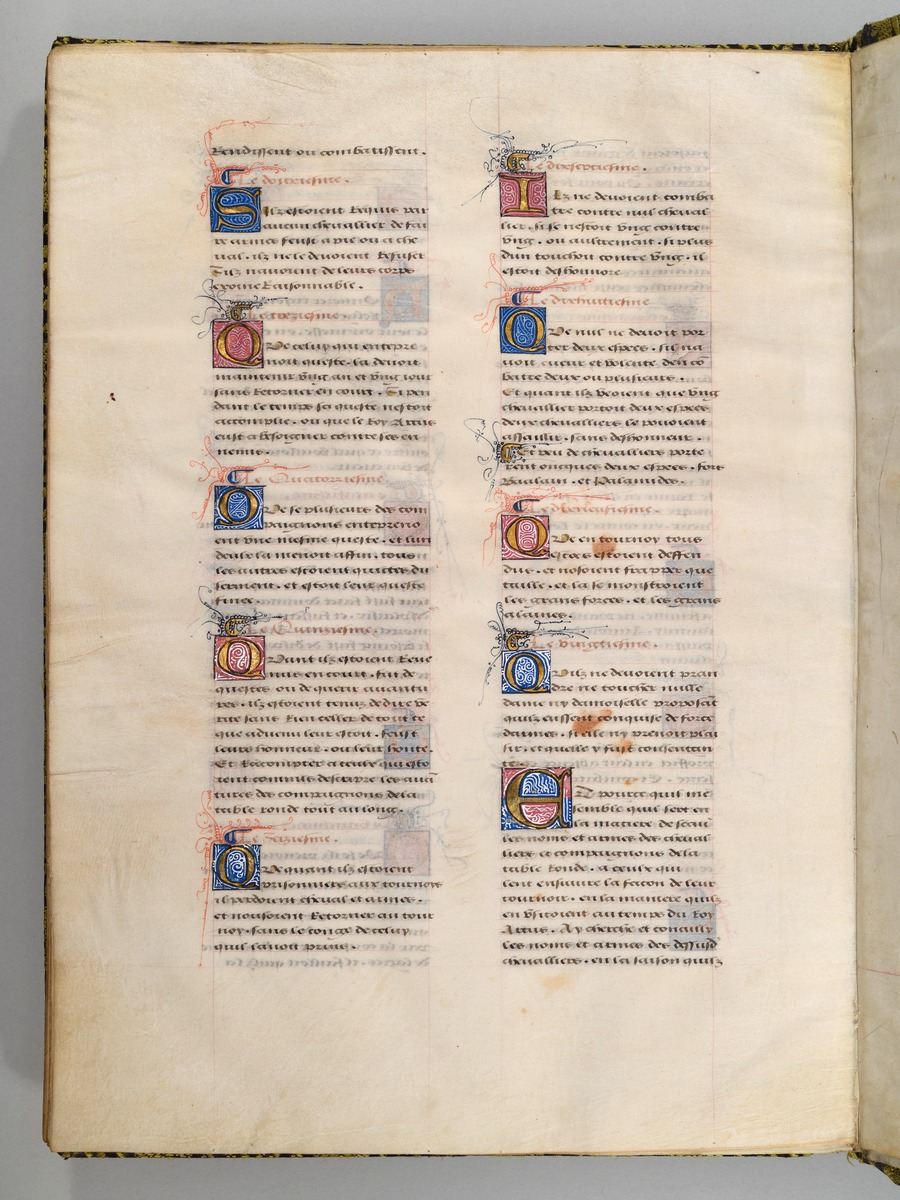 Rendissent ou combatissent.
Le douziesme.
Silz estoient Requis par
aucun chevallier de fai
re armes feust a pie ou a che
val. ilz ne le devoient Refuser
silz navoient de leurs corps
exoine Raisonnable.
Le treziesme.
Que celuy qui entepre
noit queste. la devoit
maintenir vng an et vng iour
sans Retorner en court. Si pen
dant le temps sa queste nestoit
accomplie. ou que le Roy Artus
eust a besoigner contre ses en
nemis.
Le Quatorziesme.
Que se plusieurs des com
paignons entepreno
ent vne mesme queste. et lun
deulx la menoit affin. tous
les autres estoient quictes du
serment. et estoit leur queste
finee.
Le Quinziesme.
Quant ilz estoient Reue
nus en court. fut de
questes ou de querir auantu
res. ilz estoient tenuz de dire ve
rite sans Rien celler de tout ce
que advenu leur estoit. feust
leure honneur. ou leur honte.
Et Racompter a ceulx qui esto
rent commis descripre les auā
tures des compaignons de la
table ronde tout au long.
Le Seiziesme.
Que quant ilz estoient
prisonniers aux tournoys
ilz perdoient cheval et armes.
et nousoient Retorner au tour
noy. sans le congé de celuy
qui lavoit prins.
Le dixseptiesme.
Ilz ne devoient comba
tre contre nul cheval
lier. si se nestoit vng contre
vng. ou aultrement. si plus
dun touchoit contre vng. il
estoit deshonnore
Le dixhuitiesme
Que nul ne devoit por
ter deux espees. sil na
voit cueur et volente de cō
batre deux ou plusieurs.
Et quant ilz veoient que vng
chevallier portoit deux espees
deux chevalliers le pouoient
assaillir. sans deshonneur.
Et peu de chevalliers porte
rent oncques deux espees. fors
Baalain. et Palamides.
Le dixneufiesme.
Que en tournoy tous
estocs estoient deffen
dus. et nosoient frapper que
taille. et la se monstroient
les grans forces. et les grans
alaines.
Le vingtiesme.
Quilz ne devoient pran
dre ne toucher nulle
dame ny damoiselle proposāt
quilz eussent conquise de force
darmes. si elle ny prenoit plai
sir. et quelle y fust consentan
te.
Et pource quil me
semble quil sert en
la matiere de scaū
les noms et armes des cheval
liers et compaignons de la
table Ronde. a ceulx qui
lent ensuivre la facon de leur
tournoir. en la maniere quilz
en vsitoient au temps du Roy
Artus. Ay cherché et concuilly
les noms et armes des dessusd
chevalliers. en la saison quilz